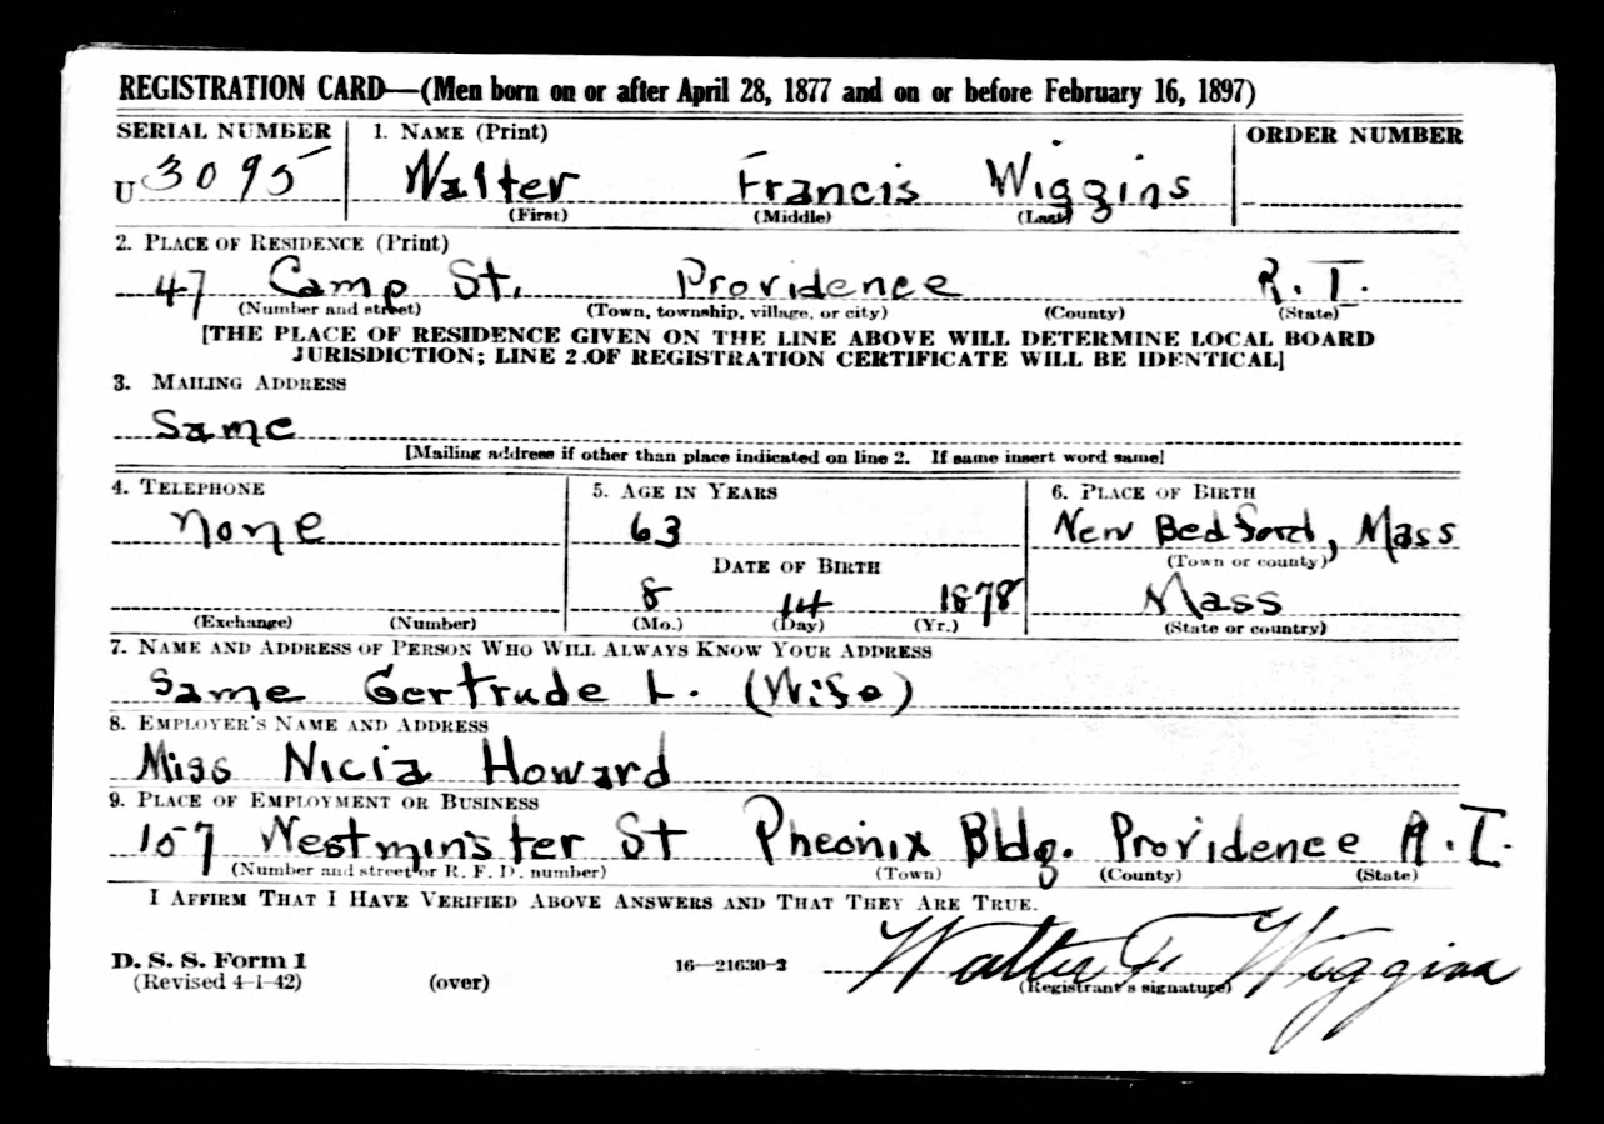 REGISTRATION CARD—(Men born on or after April 28, 1877 and on or before February 16, 1897)
SERIAL NUMBER 1. NAME (Print) ORDER NUMBER
U 3095 Walter Francis Wiggins
(First) (Middle) (Last)
2. PLACE OF RESIDENCE (Print)
47 Camp St. Providence R. I.
(Number and street) (Town, township, village, or city) (County) (State)
[THE PLACE OF RESIDENCE GIVEN ON THE LINE ABOVE WILL DETERMINE LOCAL BOARD
JURISDICTION; LINE 2 OF REGISTRATION CERTIFICATE WILL BE IDENTICAL]
3. MAILING ADDRESS
Same
[Mailing address if other than place indicated on line 2. If same insert word same]
4. TELEPHONE 5. AGE IN YEARS 6. PLACE OF BIRTH
None 63 New Bedford, Mass
DATE OF BIRTH (Town or county)
8 14 1878 Mass
(Exchange) (Number) (Mo.) (Day) (Yr.) (State or country)
7. NAME AND ADDRESS OF PERSON WHO WILL ALWAYS KNOW YOUR ADDRESS
Same Gertrude L. (Wife)
8. EMPLOYER'S NAME AND ADDRESS
Miss Nicia Howard
9. PLACE OF EMPLOYMENT OR BUSINESS
157 Westminster St Pheonix Bldg. Providence R. I.
(Number and street or R. F. D. number) (Town) (County) (State)
I AFFIRM THAT I HAVE VERIFIED ABOVE ANSWERS AND THAT THEY ARE TRUE.
D. S. S. Form 1
(Revised 4-1-42) (over) 16—21630-2 Walter F. Wiggins
(Registrant's signature)